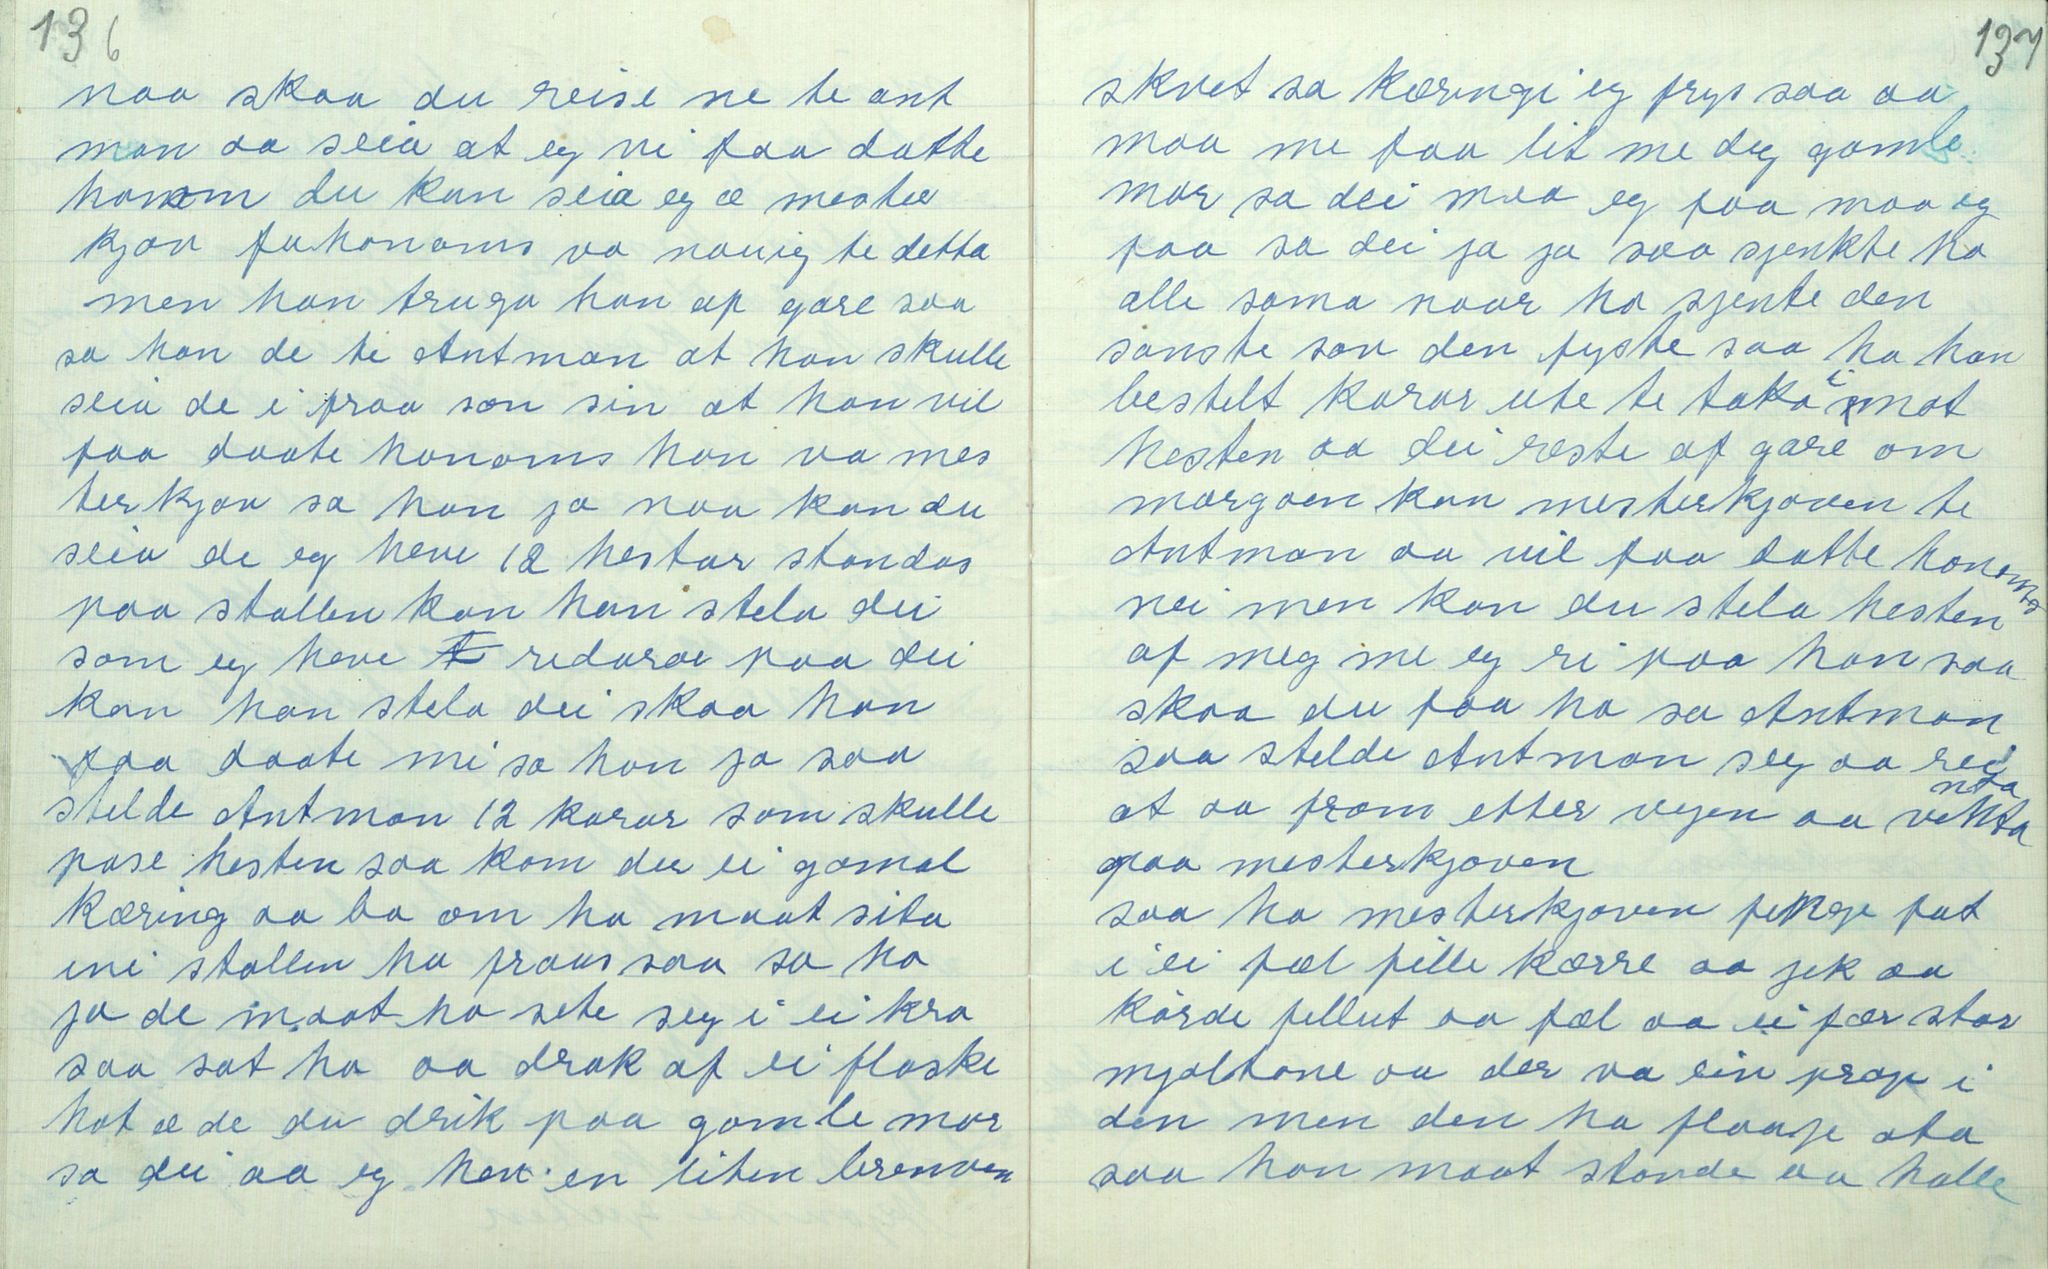 136
naa skaa du reise ne te ant
man aa seia at eg vi faa datte
honom du kan seia eg æ mester
kjøv fa honoms va nauig te detta
men han truga han af gare saa
sa han de te Antman at han skulle
seia de i fraa søn sin at han vil
faa daate honoms han va mes
ter kjøv sa han ja naa kan du
seia de eg heve 12 hestar standas
paa stallen kan han stela dei
som eg heve redarar paa dei
kan han stela dei skaa han
faa daate mi sa han ja saa
stelde Antman 12 karar som skulle
pase hesten saa kom der ei gamal
Kæring aa ba om ha maat sita
ini stallen ha fraus saa sa ha
ja de maat ha sete seg i ei kra
saa sat ha aa drak af ei flaske
hot æ de du drik paa gamle mor
sa dei aa eg hev en liten brenven
137
skvet sa kæringi eg frys saa aa
maa me faa lit me deg gamle
mor sa dei maa eg faa maa eg
faa sa dei ja ja saa sjenkte ha
alle sama naar ha sjente den
sanste sov den fyste saa ha han
bestelt karar ute te taka imot
hesten aa dei reste af gare om
morgaen kan mesterkjøven te
Antman aa vil faa datte honoms
nei men kan du stela hesten
af meg me eg ri paa han saa
skaa du faa ha sa Antman
saa stelde Antman seg aa rei
at aa fram etter vegen aa venta
paa mesterkjøven
saa ha mesterkjøven fenge fat
i ei fæl fille kærre aa jek aa
kørde fellut aa fæl aa ei fær stor
mjøltøne aa der va ein prop i
den men den ha flaage ata
saa han maat stonde aa halle